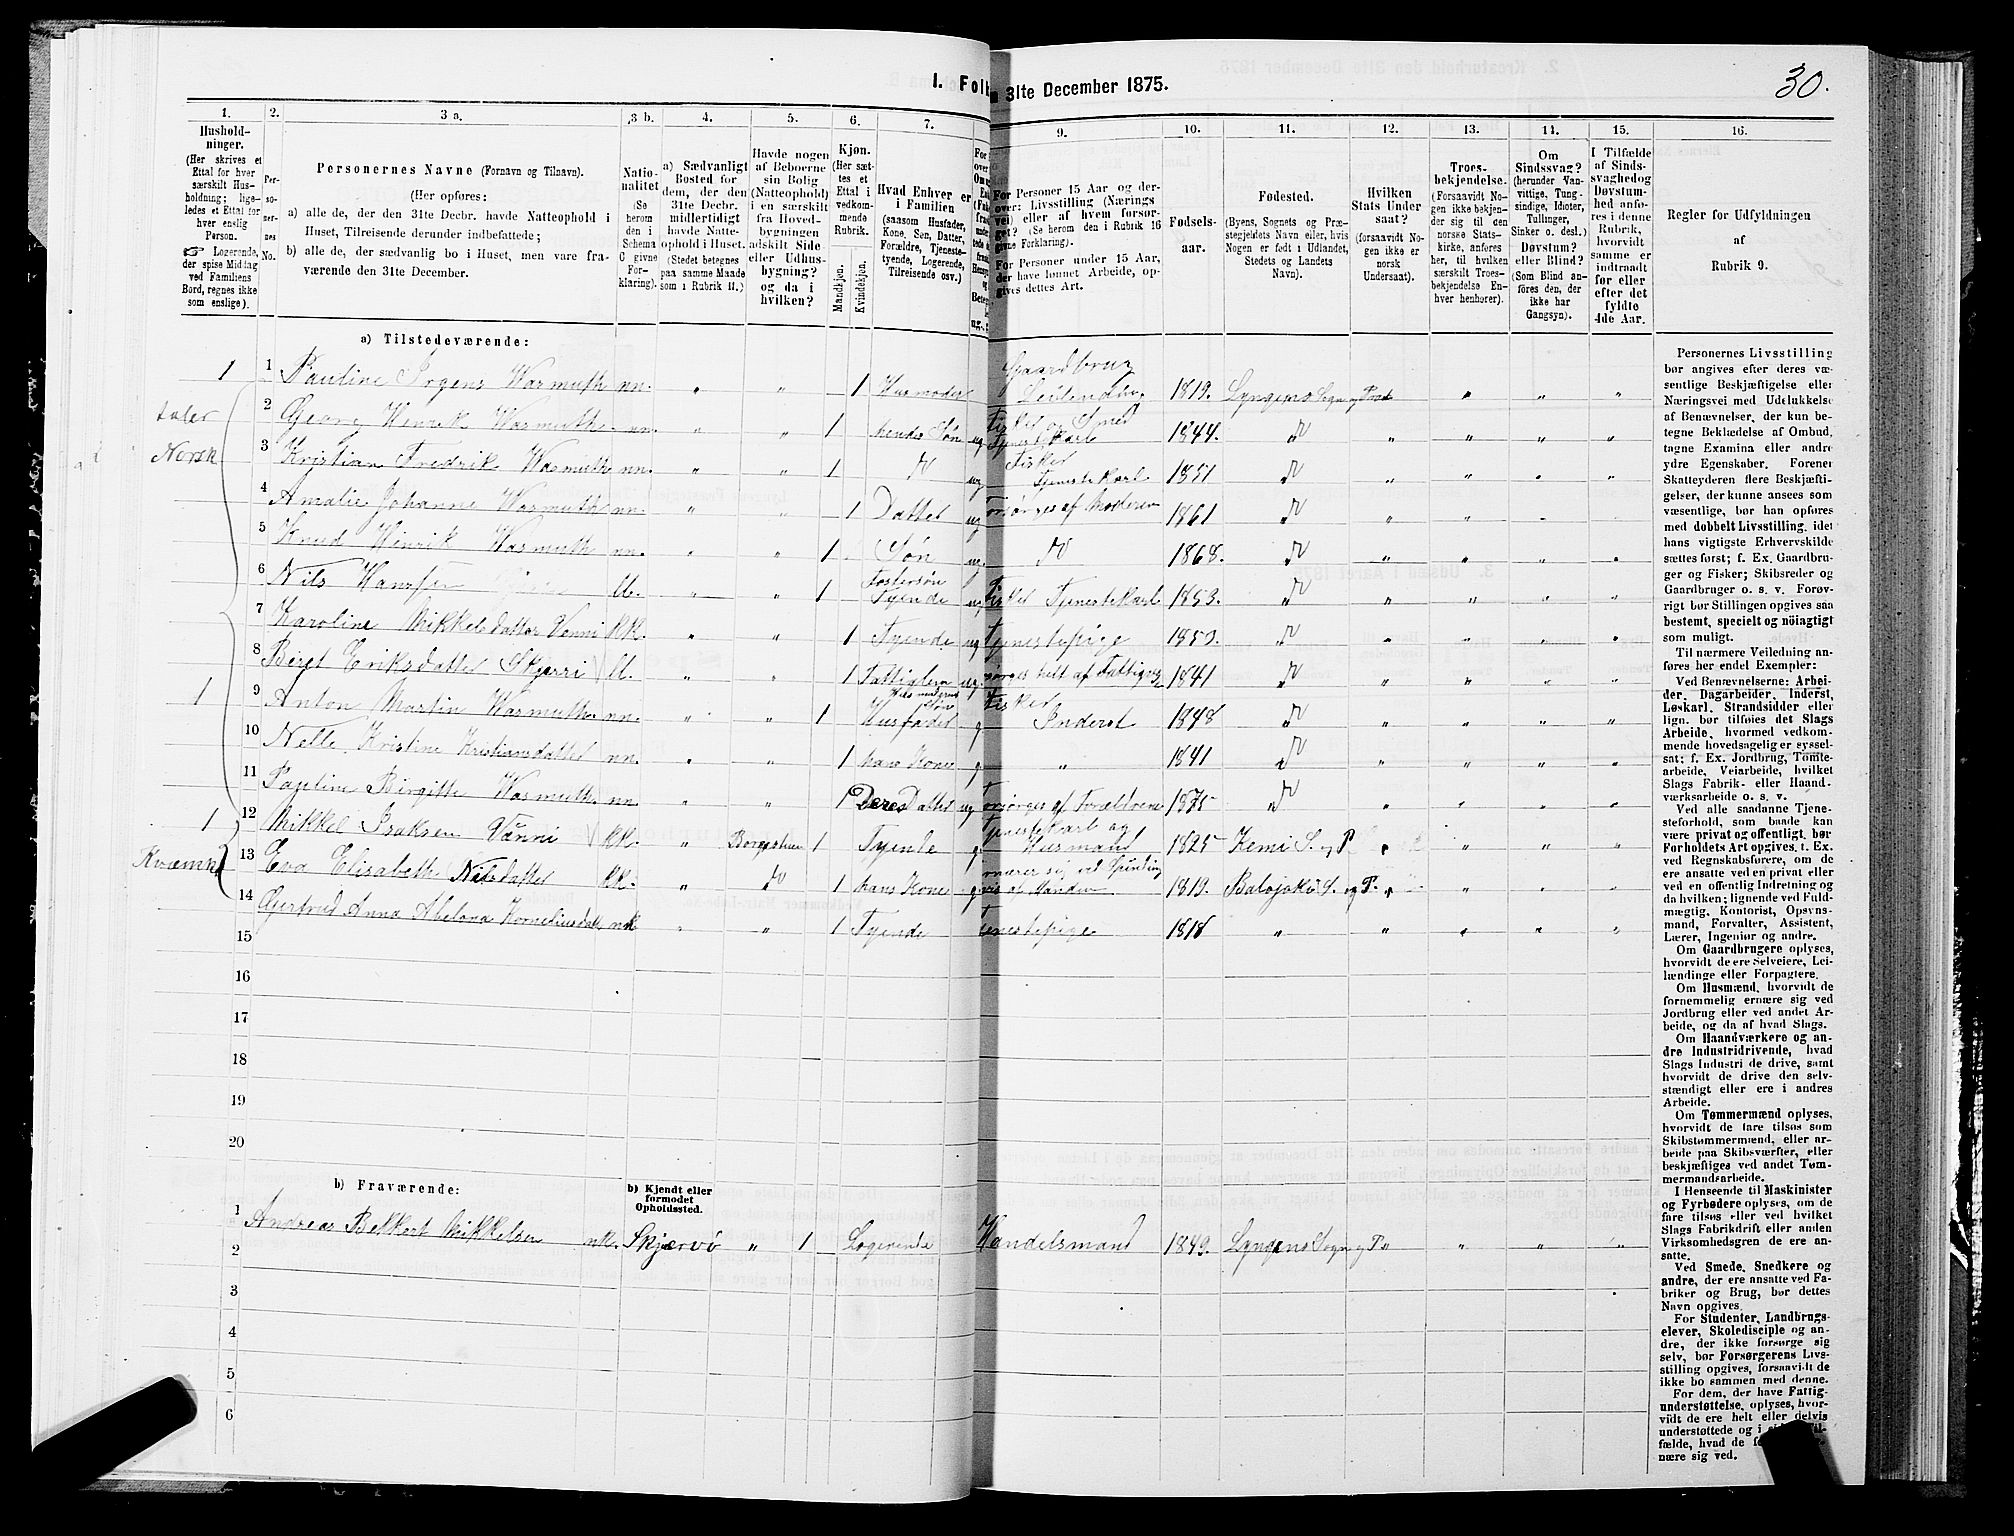 30.
1. Folk
n 31te December 1875.
1. 2. 3 a. 3 b. 4. 5. 6. 7. 9. 10. 11. 12. 13. 14. 15. 16.
Hushold-
ninger.
(Her skrives et
Ettal for hver
særskilt Hus-
holdning; lige-
ledes et Ettal for
hver enslig
Person.
Logerende,
der spise Middag
ved Familiens
Bord, regnes ikke
som enslige).
Per-
so-
ner-
nes
No.
Personernes Navne (Fornavn og Tilnavn).
(Her opføres:
a) alle de, der den 31te Decbr. havde Natteophold i
Huset, Tilreisende derunder indbefattede;
b) alle de, der sædvanlig bo i Huset, men vare fra-
værende den 31te December.
Natio-
nalitet
(Se
herom
den i
Schema
C givne
For-
klaring).
a) Sædvanligt
Bosted for
dem, der den
31te Decbr.
midlertidigt
havde Natte-
ophold i Huset.
(Stedet betegnes
paa samme Maade
som i Rubrik 11.)
Havde nogen
af Beboerne
sin Bolig
(Natteophold)
i en særskilt
fra Hoved-
bygningen
adskilt Side-
eller Udhus-
bygning?
og da i
hvilken?
Kjøn.
(Her sæt-
tes et
Ettal i
vedkom-
mende
Rubrik.
Mandkjøn.
Kvindekjøn.
Hvad Enhver er
i Familien
(saasom Husfader,
Kone, Søn, Datter,
Forældre, Tjeneste-
tyende, Logerende,
Tilreisende osv.)
For Personer 15 Aar og der-
over: Livsstilling (Nærings
vei) eller af hvem forsør-
get? (Se herom den i Rubrik 16
givne Forklaring).
For Personer under 15 Aar,
der have lønnet Arbeide, op-
gives dettes Art.
Fødsels-
aar.
Fødested.
(Byens, Sognets og Præ-
stegjeldets Navn eller, hvis
Nogen er født i Udlandet,
Stedets og Landets
Navn).
Hvilken
Stats Under
saat?
(forsaavidt No-
gen ikke er
norsk
Undersaat).
Troes-
bekjendelse.
(Forsaavidt No-
gen ikke bekjen-
der sig til den
norske Stats-
kirke, anføres
her, til hvilken
særskilt Troes-
bekjendelse En-
hver henhører).
Om
Sindssvag?
(herunder Van-
vittige, Tung-
sindige, Idioter,
Tullinger,
Sinker o. desl.)
Døvstum?
eller Blind?
(Som Blind an-
føres den, der
ikke har
Gangsyn).
I Tilfælde
af Sinds-
svaghed og
Døvstum-
hed anfø-
res i denne
Rubrik,
hvorvidt
samme er
indtraadt
før eller
efter det
fyldte
4de Aar.
Regler for Udfyldningen
af
Rubrik 9.
a) Tilstedeværende:
1 1 Pauline Irgens Warmuth nn. " " 1 Husmoder Gaardbrug Leilending 1819. Lyngens Sogn og Præst " " "
taler
Norsk
2 Georg Henrik Warmuth nn. " " 1 hendes Søn ug Fisker og Smed Tjenestekarl 1844. " " " "
3 Kristian Fredrik Warmuth nn. " " 1 ug Fisker Tjenestekarl 1851 " " " "
4 Amalie Johanne Warmuth nn. " " 1 Datter ug forsørges af Moderen 1861
5 Knud Hinrik Warmuth nn. " " 1 Søn ug. 1868. " " " "
6 Nils Hansen bl. " " 1 Fostersøn Tyende ug Fisker Tjenestekarl 1853. " " " "
7 Karoline Mikkelsdatter Vanni kk. " " 1 Tyende ug Tjenestepige 1850.
8 Beret Eriksdatter Skjerri bl. " " 1 Fattiglem ug. forsørges helt af Fattigv. 1841
1 9 Anton Martin Warmuth nn. " " 1 Husmoderens Søn Husfader g Fisker Inderst 1848
10 Nelle Kristine Kristiansdatter nn. 1 hans Kone g " 1841
11 Pauline Birgitte Warmuth nn. " " 1 Deres Datter ug Forsørges af Forældrene 1875
1 12 Mikkel Isaksen Vanni kk. " Borgestuen 1 Tyende g Tjenestekarl og Husmand 1825 Kemi S. og P.
Kvænsk
13 Eva Elisabeth Nilsdatter kk. " 1 hans Kone g nærer sig ved Spinding vis af Manden 1819. Balojoki S. og P.
14 Gertrud Anna Abelona Korneliusdatt. nk. " " 1 Tyende Tjenestepige 1818 " " " " "
15
16
17
18
19
20
b) Fraværende:
b) Kjendt eller
formodet
Opholdssted.
1 Andreas Bekkert Mikkelsen nk. Skjærvø " 1 Logerende Handelsmand 1849. Lyngens Sogn og P. " " " "
2
3
4
5
6
Personernes Livsstilling
bør angives efter deres væ-
sentlige Beskjæftigelse eller
Næringsvei med Udelukkelse
af Benævnelser, der kun be-
tegne Beklædelse af Ombud,
tagne Examina eller andre
ydre Egenskaber. Forener
Skatteyderen flere Beskjæfti-
gelser, der kunne ansees som
væsentlige, bør han opføres
med dobbelt Livsstilling, idet
hans vigtigste Erhvervskilde
sættes først; f. Ex. Gaardbru-
ger og Fisker; Skibsreder og
Gaardbruger o. s. v. Forøv-
rigt bør Stillingen opgives saa
bestemt, specielt og nøiagtigt
som muligt.
Til nærmere Veiledning an-
føres her endel Exempler:
Ved Benævnelserne: Arbei-
der, Dagarbeider, Inderst,
Løskarl, Strandsidder eller
lign. bør tilføies det Slags
Arbeide, hvormed vedkom-
mende hovedsagelig er syssel-
sat; f. Ex. Jordbrug, Tomte-
arbeide, Veiarbeide, hvilket
Slags Fabrik- eller Haand-
værksarbeide o. s. v.
Ved alle saadanne Tjene-
steforhold, som baade kan
være privat og offentligt, bør
Forholdets Art opgives, t. Ex.
ved Regnskabsførere, om de
ere ansatte ved en privat eller
ved en offentlig Indretning og
da hvilken; lignende ved Fuld-
mægtig, Kontorist, Opsyns-
mand, Forvalter, Assistent,
Lærer, Ingeniør og andre.
Om Gaardbrugere oplyses,
hvorvidt de ere Selveiere, Lei-
lændinge eller Forpagtere.
Om Husmænd, hvorvidt de
fornemmelig ernære sig ved
Jordbrug eller ved andet Ar-
beide, og da af hvad Slags.
Om Haandværkere og an-
dre Industridrivende, hvad
Slags Industri de drive, samt
hvorvidt de drive den selv-
stændigt eller ere i andres
Arbeide.
Om Tømmermænd oplyses,
hvorvidt de fare tilsøs som
Skibstømmermænd, eller ar-
beide paa Skibsværfter, eller
beskjæftiges ved andet Tøm-
mermandsarbeide.
I Henseende til Maskinister
og Fyrbødere oplyses, om de
fare tilsøs eller ved hvilket
Slags Fabrikdrift eller anden
Virksomhedsgren de ere an-
satte.
Ved Smede, Snedkere og
andre, der ere ansatte ved Fa-
briker og Brug, bør dettes
Navn opgives.
For Studenter, Landbrugs-
elever, Skoledisciple og an-
dre, der ikke forsørge sig
selv, bør Forsørgerens Livs-
stilling opgives, forsaavidt de
ikke bo sammen med denne.
For dem, der have Fattig-
understøttelse, oplyses, hvor-
vidt de ere helt eller delvis
understøttede og i
fælde, hvad de
nære sig ved.